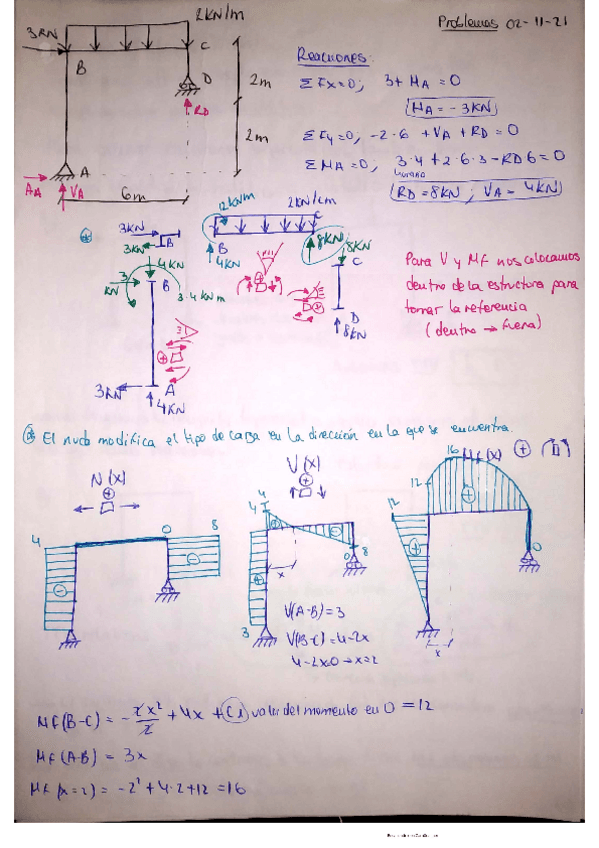 2kN/m
Problemas 02-11-21
3kN
B
C
D
2m
RD
2m
A
HA
VA
6m
Reacciones:
ΣFx=0; 3+HA=0
HA=-3kN
ΣFy=0; -2·6 +VA +RD=0
ΣMA=0, 3·4+2·6·3-RD6=0
horario
RD=8kN; VA=4kN
3kN
3kN
B
4kN
12kNm
2kN/m
B
4kN
C
8kN
8kN
C
D
8kN
3
kN
B
3·4kNm
3kN
A
4kN
Para V y MF nos colocamos
dentro de la estructura para
tomar la referencia
(dentro → fuera)
El nudo modifica el tipo de carga en la dirección en la que se encuentra.
N(x)
+
4
0
8
-
-
V(x)
+
4
4
+
3
x
0
8
V(A-B)=3
V(B-C)=4-2x
4-2x=0→x=2
16
Mf(x)
+
12
12
+
+
0
x
Mf(B-C) = -2x²/2 + 4x + C1 valor del momento en 0 = 12
Mf(A-B) = 3x
Mf(x=2) = -2²+4·2+12=16